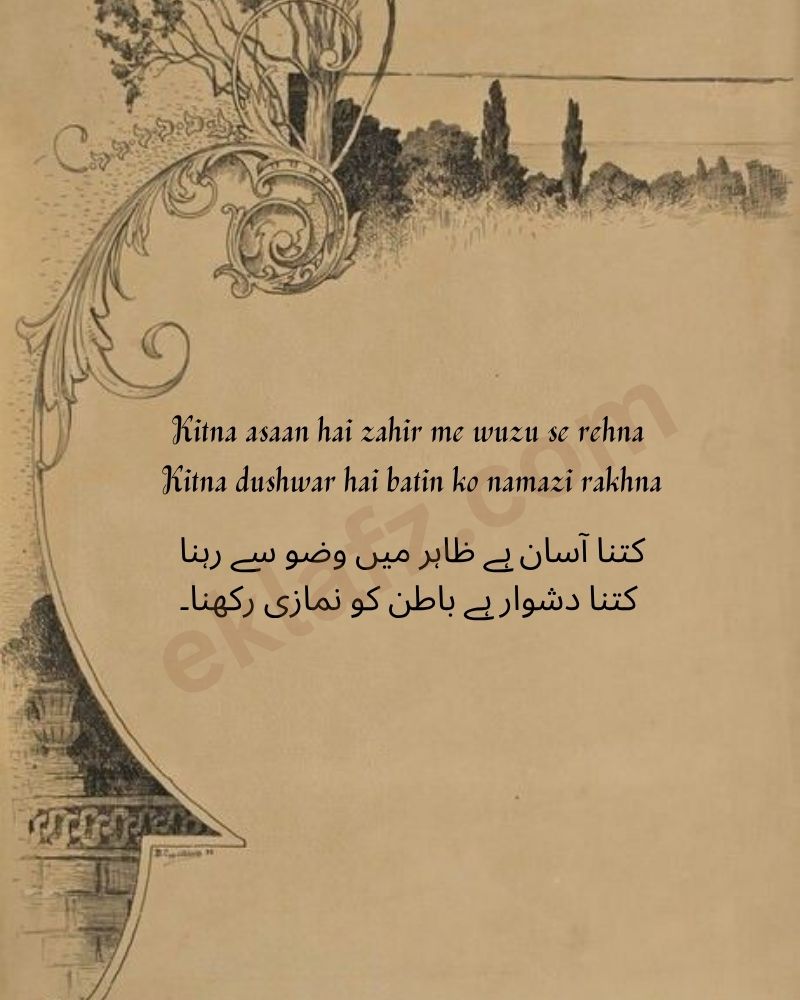 Kitna asaan hai zahir me wuzu se rehna
Kitna dushwar hai batin ko namazi rakhna
کتنا آسان ہے ظاہر میں وضو سے رہنا
کتنا دشوار ہے باطن کو نمازی رکھنا۔
eklafz.com